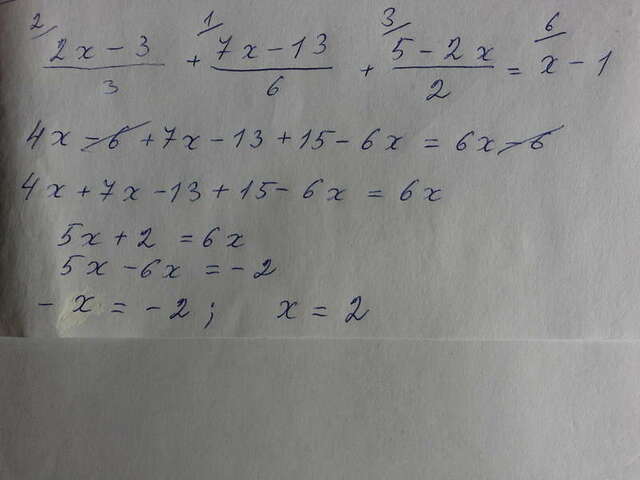 2/ (2x - 3)/3 + 1/ (7x - 13)/6 + 3/ (5 - 2x)/2 = 6/ x - 1
4x - 6 + 7x - 13 + 15 - 6x = 6x - 6
4x + 7x - 13 + 15 - 6x = 6x
5x + 2 = 6x
5x - 6x = - 2
- x = - 2 ; x = 2